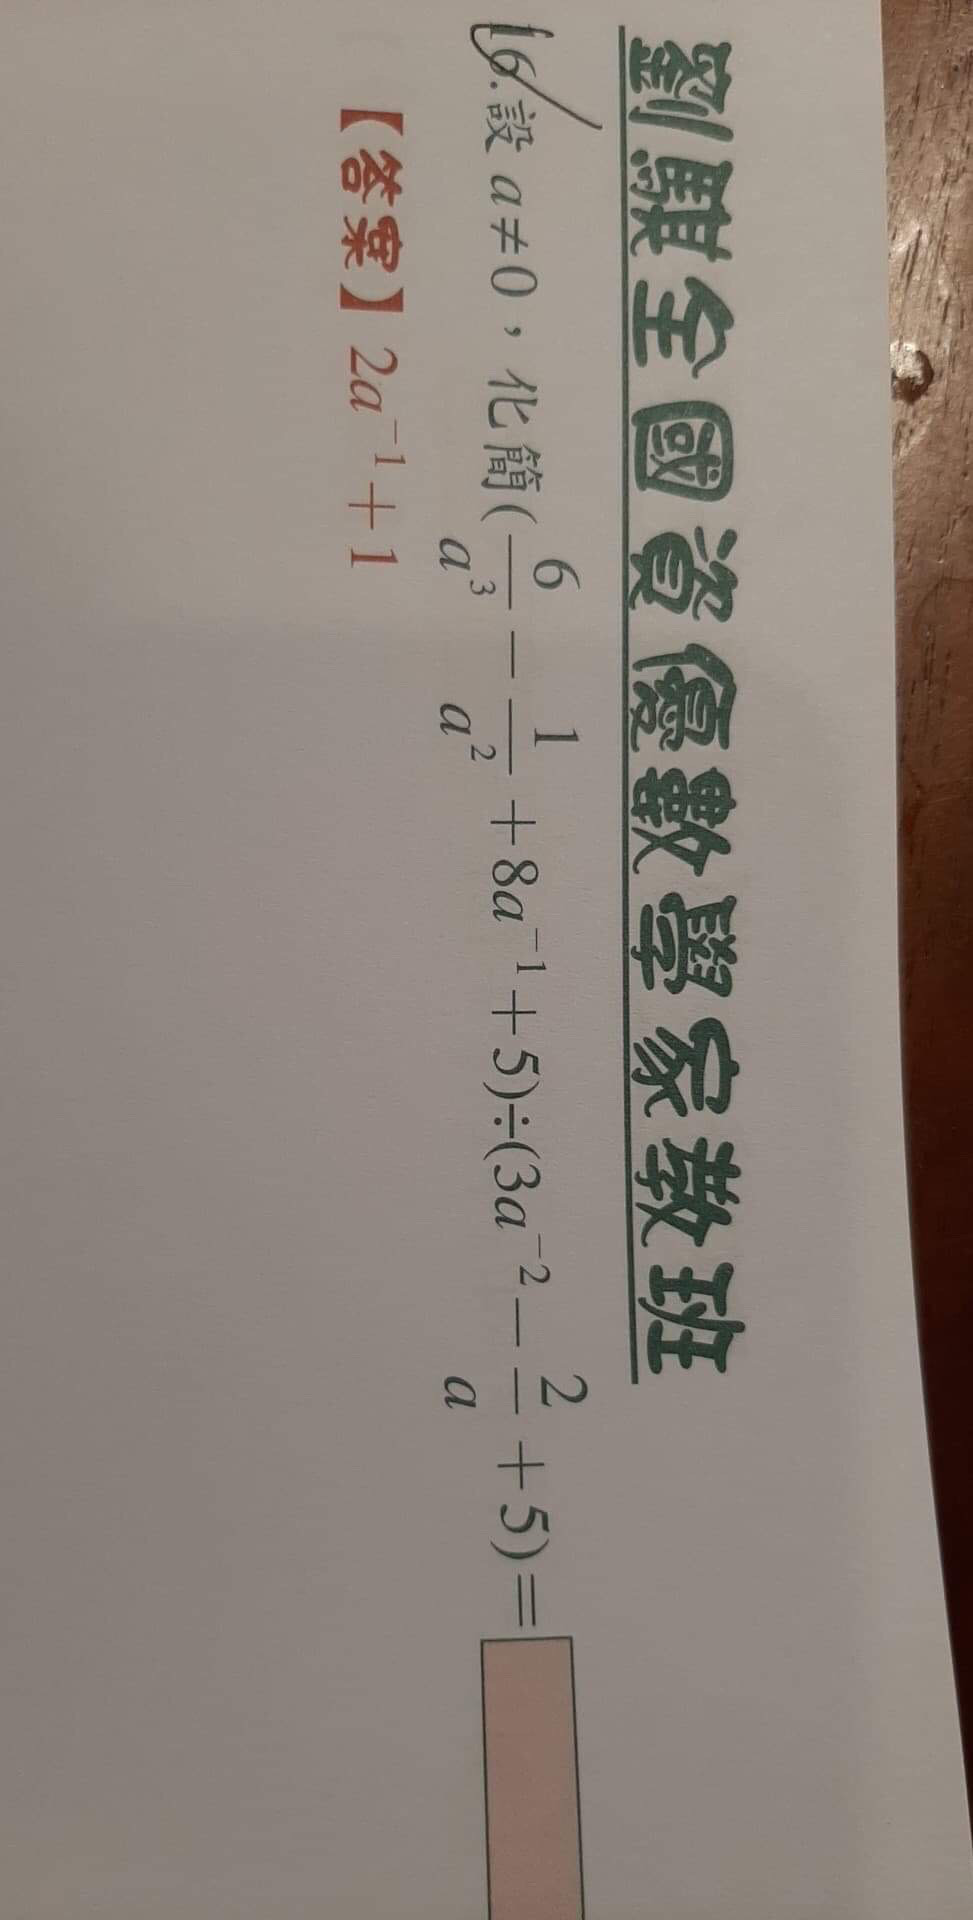 劉騏全國資優數學家教班
16.設 a≠0，化簡(6/a³ − 1/a² + 8a⁻¹ + 5)÷(3a⁻² − 2/a + 5)=
【答案】2a⁻¹ + 1